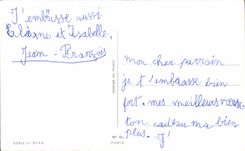 J'embrasse aussi
Eléonne et Isabelle.
Jean-François
mon cher parrain
je t'embrasse bien
fort. mes meilleurs
ton cadeau m'a bien
plus. J'
PARIS